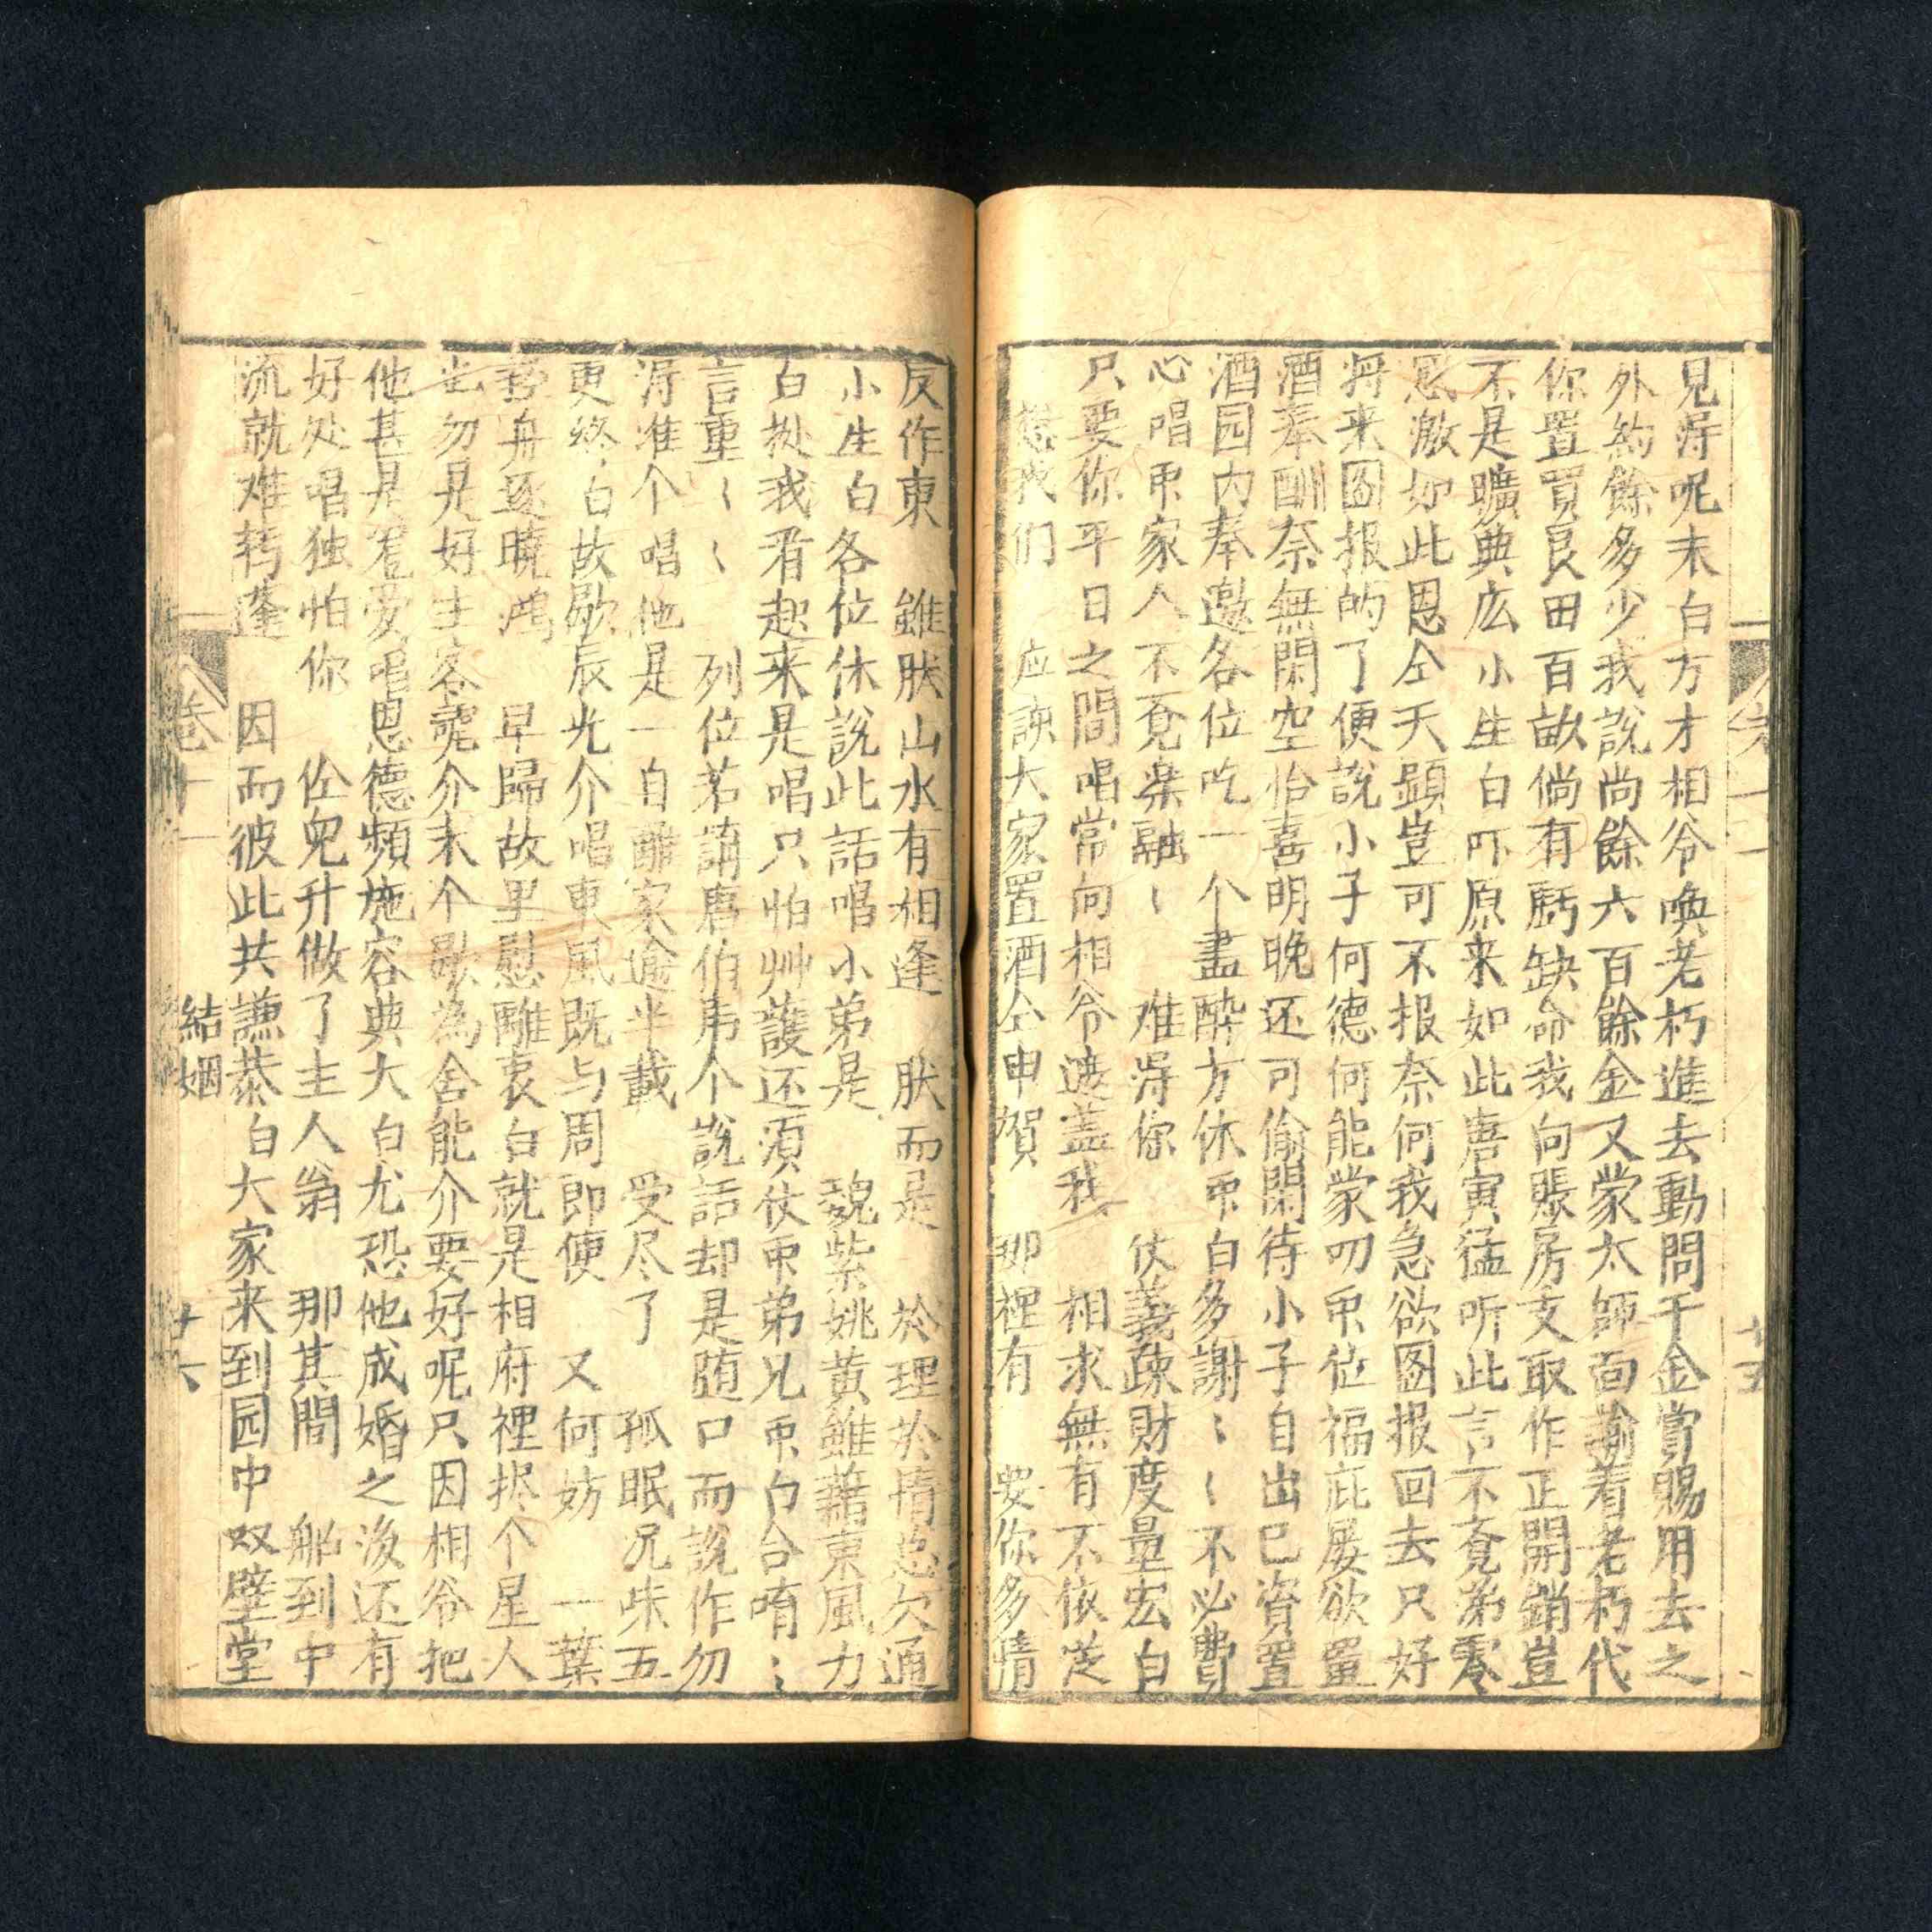 見淂呢末白方才相爷喚老朽進去動問千金賞賜用去之
外約餘多少我說尚餘六百餘金又蒙太師面諭着老朽代
你置買良田百畝倘有虧缺命我向賬房支取作正開銷豈
不是曠典庅小生白吓原来如此唐寅猛听此言不覔涕零
感激如此恩仝天顕豈可不报奈何我急欲图报回去只好
将来图报的了便說小子何德何能蒙叨帀位福庇屡欲置
酒奉酬奈無閑空怡喜明晚还可偷閑待小子自出己資置
酒园内奉邀各位吃一个盡醉方休帀白多謝〻〻不必費
心唱帀家人不覔樂融〻 难淂你 仗義疎財度量宏白
只要你平日之間唱常向相爷 遮盖我 相求無有不依从
我们 应該大家置酒仝申賀 那裡有 要你多情
反作東 雖肰山水有相逢 肰而是 於理於情 欠通
小生白各位休說此話唱小弟是 魏紫姚黄雖藉東風力
白 我看起来是唱只怕艸護还須仗帀弟兄帀白合唷〻
言重〻〻 列位若講唐伯虎个說話却是随口而說作勿
淂准个唱他是一自離家逾半載 受尽了 孤眠况味五
更终白故歇辰光介唱東風既与周郎便 又何妨 一葉
舟逐曉鴻 早歸故里慰離衷白就是相府裡拨个星人
也勿是好主客 介末个歇為舍能介要好呢只因相爷把
他甚是寵愛唱恩德頻施容典大白尤恐他成婚之後还有
好处唱独怕你 佐皃升做了主人翁 那其間 船到中
流就难转蓬 因而彼此共謙恭白大家来到园中双壁堂
卷十一 結姻 廿六
廿五